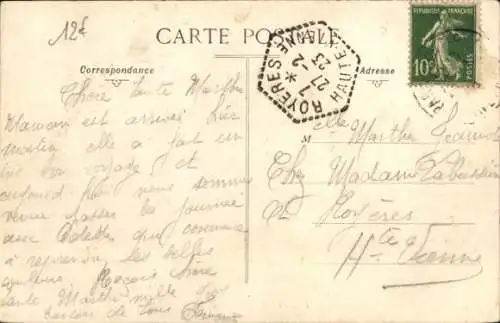 12f
CARTE POSTALE
Correspondance
Adresse
REPUBLIQUE FRANÇAISE
10c
POSTES
ROYERES
HAUTE VIENNE
7 *
27-2
23
Chère tante Marthe
Maman est arrivée hier
matin elle a fait un
bon voyage et
aujourd'hui nous sommes
venue passer la journée
avec qui commence
à reprendre les belles
couleurs Reçois chère
tante Marthe mille gros
baisers de tous
M elle Marthe
Chez Madame
à Royères
Hte Vienne